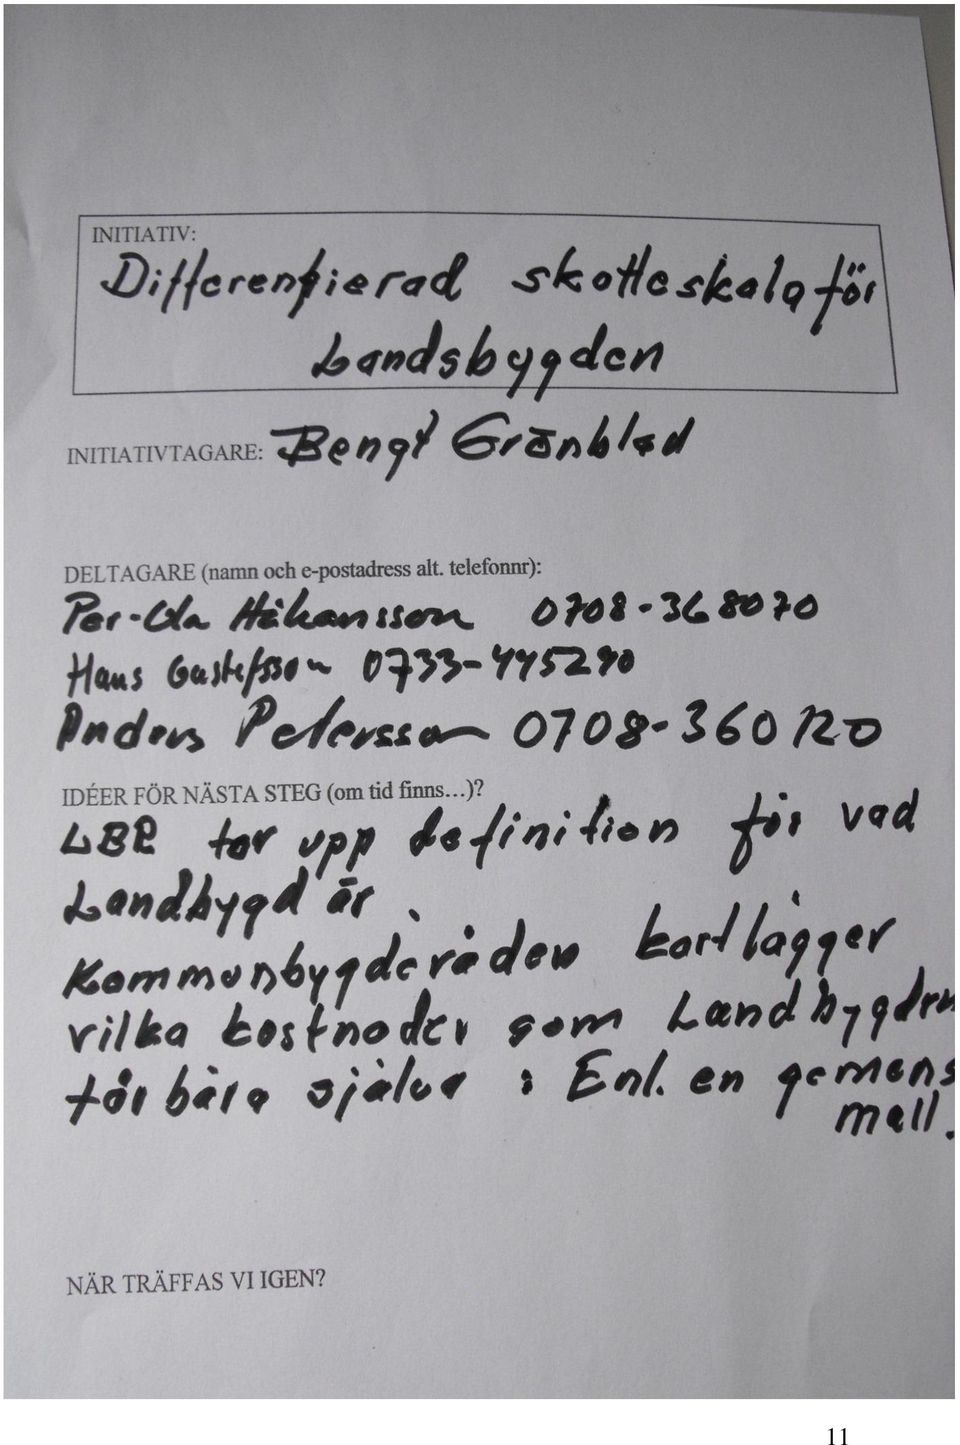 INITIATIV:
Differentierad skatteskala för
Landsbygden
INITIATIVTAGARE: Bengt Grönblad
DELTAGARE (namn och e-postadress alt. telefonnr):
Per-Ola Håkansson 0708-368070
Hans Gustafsson 0733-445290
Anders Petersson 0708-360120
IDÉER FÖR NÄSTA STEG (om tid finns...)?
LBR tar upp definition för vad
Landbygd är.
Kommunbygderåden kartlägger
vilka kostnader som Landbygden
får bära själva : Enl. en gemens
mall.
NÄR TRÄFFAS VI IGEN?
11